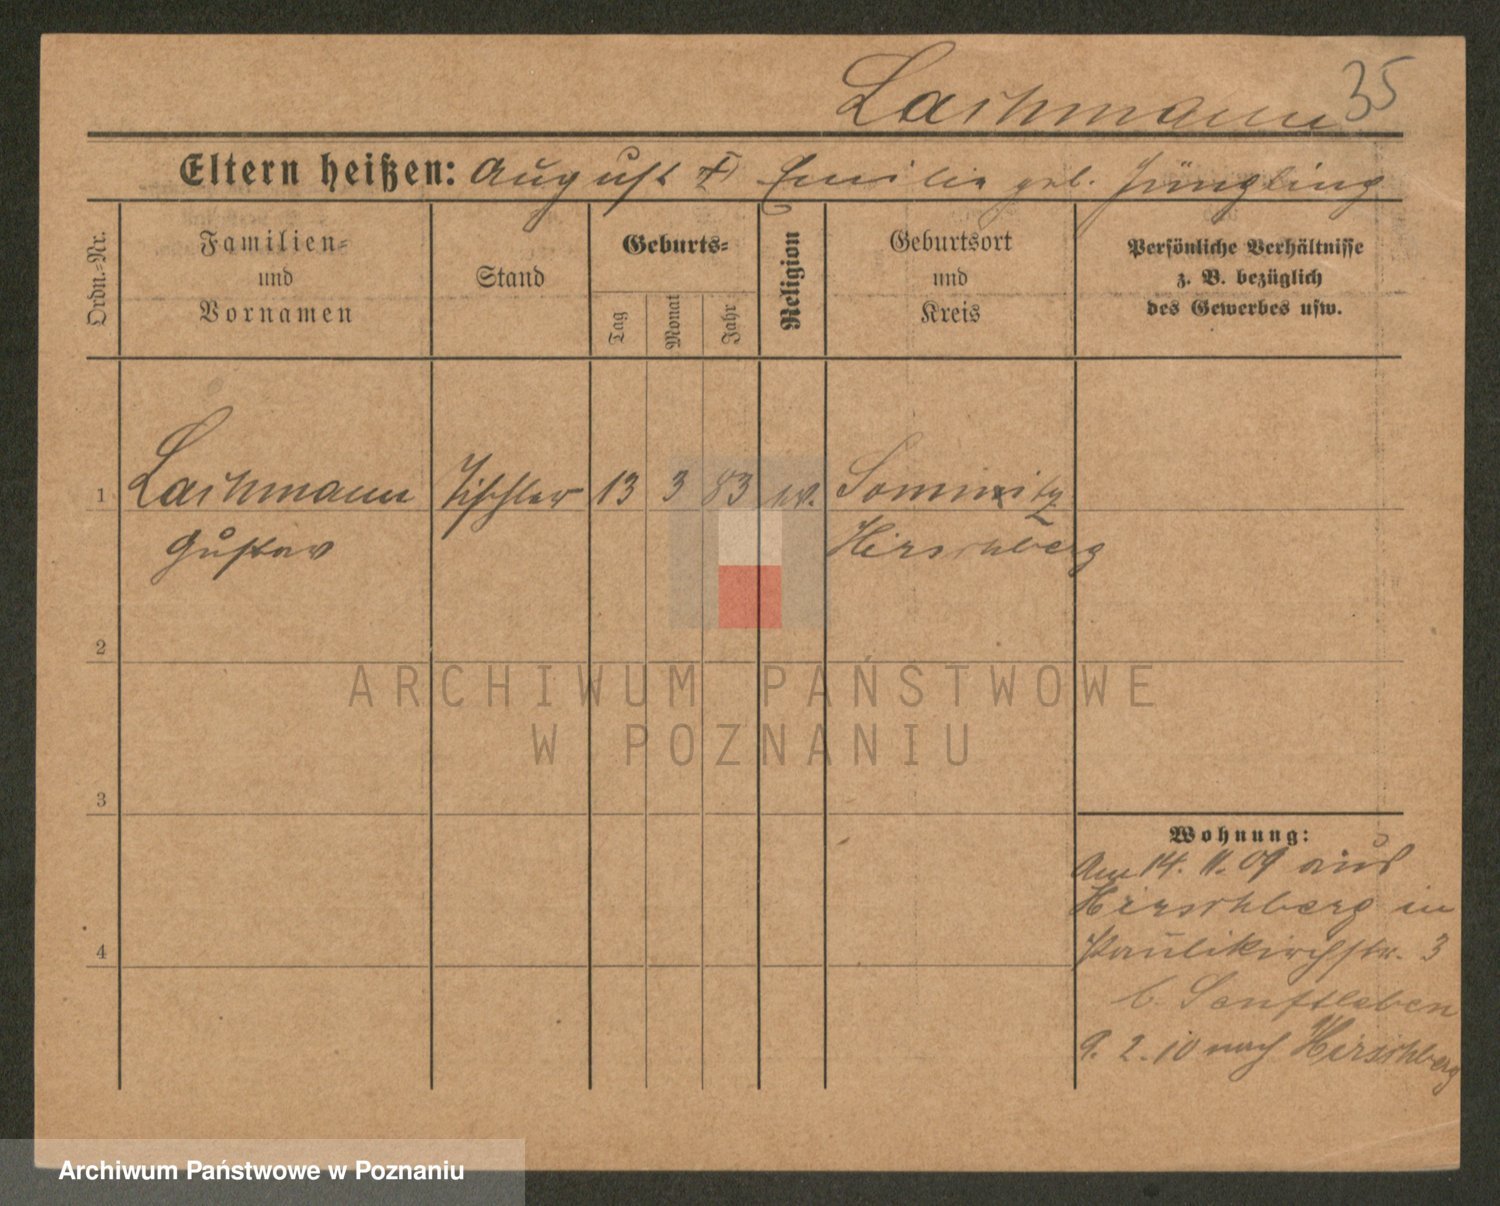 Lachmann 35
Eltern heißen: August † Emilie geb. Jüngling
Ordn.-Nr.
Familien-
und
Vornamen
Stand
Geburts-
Tag
Monat
Jahr
Religion
Geburtsort
und
Kreis
Persönliche Verhältnisse
z. B. bezüglich
des Gewerbes usw.
1 Lachmann Tischler 13 3 83 ev.
Gustav Hirschberg
2
3
4
Wohnung:
Am 14. 11. 09 aus
Hirschberg in
Paulikirchstr. 3
b. Senftleben
9. 2. 10 nach Hirschberg
ARCHIWUM PAŃSTWOWE
W POZNANIU
Archiwum Państwowe w Poznaniu